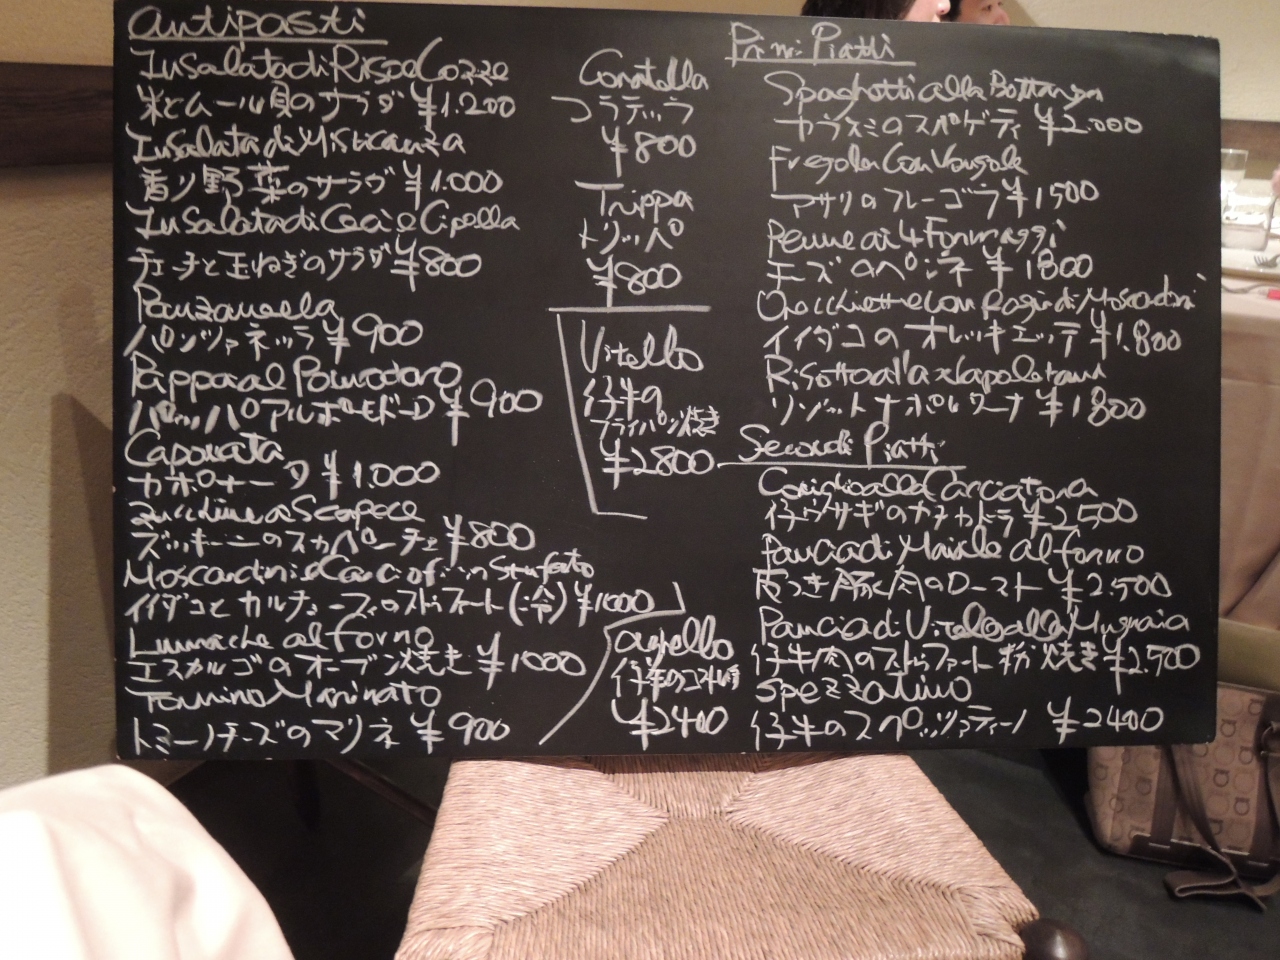 antipasti
Insalata di Riso e Cozze
米とムール貝のサラダ ¥1.200
Insalata di Misticanza
香り野菜のサラダ ¥1.000
Insalata di Ceci e Cipolla
チェーチと玉ねぎのサラダ ¥800
Panzanella
パンツァネッラ ¥900
Pappa al Pomodoro
パッパアルポモドーロ ¥900
Caponata
カポナータ ¥1.000
Zucchine a Scapece
ズッキーニのスカペーチェ ¥800
Moscardini e Carciofi in Stufato
イイダコとカルチョーフィのストゥファート(冷) ¥1000
Lumache al forno
エスカルゴのオーブン焼き ¥1000
Tomino Marinato
トミーノチーズのマリネ ¥900
Coratella
コラテッラ
¥800
Trippa
トリッパ
¥800
Vitello
仔牛の
フライパン焼き
¥2800
agnello
仔羊の
¥2400
Primi Piatti
Spaghetti alla Bottarga
カラスミのスパゲティ ¥2.000
Fregola Con Vongole
アサリのフレーゴラ ¥1500
Penne ai 4 Formaggi
チーズのペンネ ¥1800
Orecchiette con Ragù di Moscardini
イイダコのオレッキエッテ ¥1.800
Risotto alla Napoletana
リゾットナポレターナ ¥1800
Secondi Piatti
Coniglio alla Cacciatora
仔ウサギのカチャトラ ¥2500
Pancia di Maiale al forno
皮つき豚バラ肉のロースト ¥2.500
Pancia di Vitello alla Mugnaia
仔牛肉のストゥファート粉焼き ¥2.500
Spezzatino
仔牛のスペッツァティーノ ¥2400